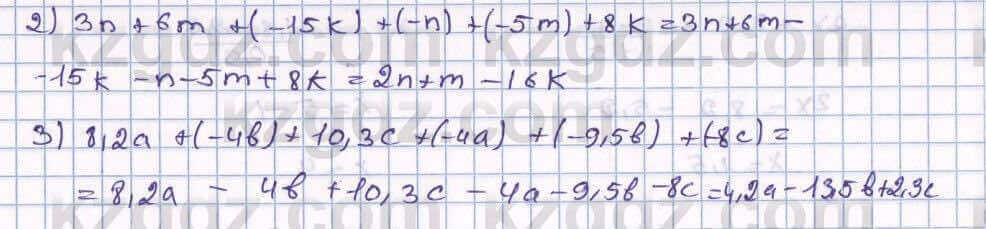 2) 3n + 6m + (-15k) + (-n) + (-5m) + 8k = 3n + 6m -
-15k - n - 5m + 8k = 2n + m - 16k
3) 8,2a + (-4в) + 10,3c + (-4a) + (-9,5в) + (-8c) =
= 8,2a - 4в + 10,3c - 4a - 9,5в - 8c = 4,2a - 13,5в + 2,3c